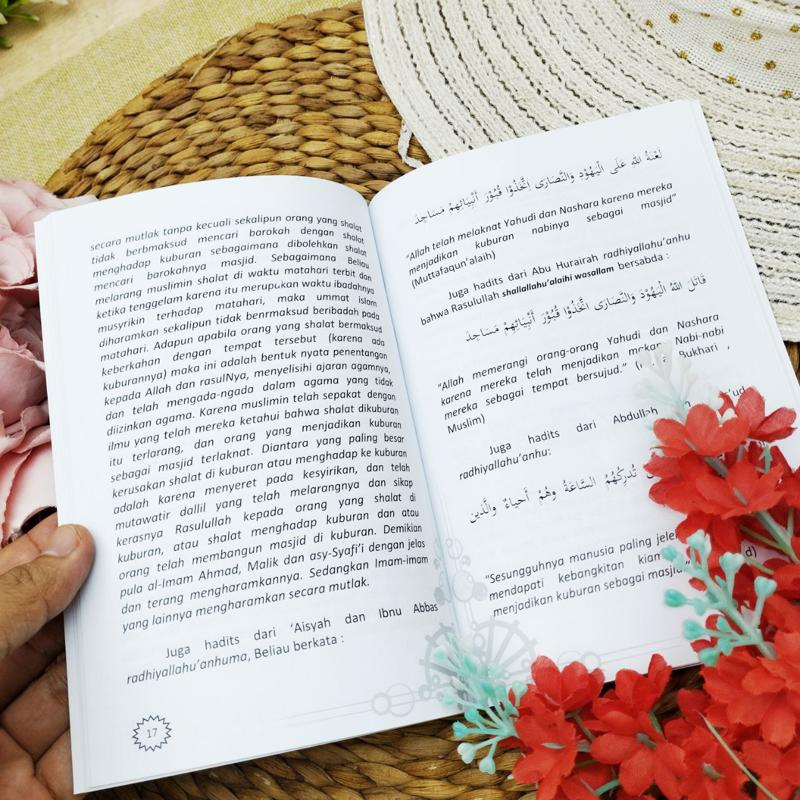 secara mutlak tanpa kecuali sekalipun orang yang shalat
tidak berbmaksud mencari barokah dengan shalat
menghadap kuburan sebagaimana dibolehkan shalat
mencari barokahnya masjid. Sebagaimana Beliau
melarang muslimin shalat di waktu matahari terbit dan
ketika tenggelam karena itu merupakan waktu ibadahnya
musyrikin terhadap matahari, maka ummat islam
diharamkan sekalipun tidak benrmaksud beribadah pada
matahari. Adapun apabila orang yang shalat bermaksud
keberkahan dengan tempat tersebut (karena ada
kuburannya) maka ini adalah bentuk nyata penentangan
kepada Allah dan rasulNya, menyelisihi ajaran agamnya,
dan telah mengada-ngada dalam agama yang tidak
diizinkan agama. Karena muslimin telah sepakat dengan
ilmu yang telah mereka ketahui bahwa shalat dikuburan
itu terlarang, dan orang yang menjadikan kuburan
sebagai masjid terlaknat. Diantara yang paling besar
kerusakan shalat di kuburan atau menghadap ke kuburan
adalah karena menyeret pada kesyirikan, dan telah
mutawatir dallil yang telah melarangnya dan sikap
kerasnya Rasulullah kepada orang yang shalat di
kuburan, atau shalat menghadap kuburan dan atau
orang telah membangun masjid di kuburan. Demikian
pula al-Imam Ahmad, Malik dan asy-Syafi'i dengan jelas
dan terang mengharamkannya. Sedangkan Imam-imam
yang lainnya mengharamkan secara mutlak.
Juga hadits dari 'Aisyah dan Ibnu Abbas
radhiyallahu'anhuma, Beliau berkata :
17
لَعْنَةُ اللهِ عَلَى الْيَهُوْدِ وَالنَّصَارَى اِتَّخَذُوْا قُبُوْرَ أَنْبِيَائِهِمْ مَسَاجِدَ
"Allah telah melaknat Yahudi dan Nashara karena mereka
menjadikan kuburan nabinya sebagai masjid"
(Muttafaqun'alaih)
Juga hadits dari Abu Hurairah radhiyallahu'anhu
bahwa Rasulullah shallallahu'alaihi wasallam bersabda :
قَاتَلَ اللهُ الْيَهُوْدَ وَالنَّصَارَى اِتَّخَذُوْا قُبُوْرَ أَنْبِيَائِهِمْ مَسَاجِدَ
"Allah memerangi orang-orang Yahudi dan Nashara
karena mereka telah menjadikan makam Nabi-nabi
mereka sebagai tempat bersujud." Bukhari ,
Muslim)
Juga hadits dari Abdullah
radhiyallahu'anhu:
تُدْرِكُهُمُ السَّاعَةُ وَهُمْ أَحْيَاءٌ وَالَّذِيْنَ
"Sesungguhnya manusia paling
mendapati kebangkitan
menjadikan kuburan sebagai